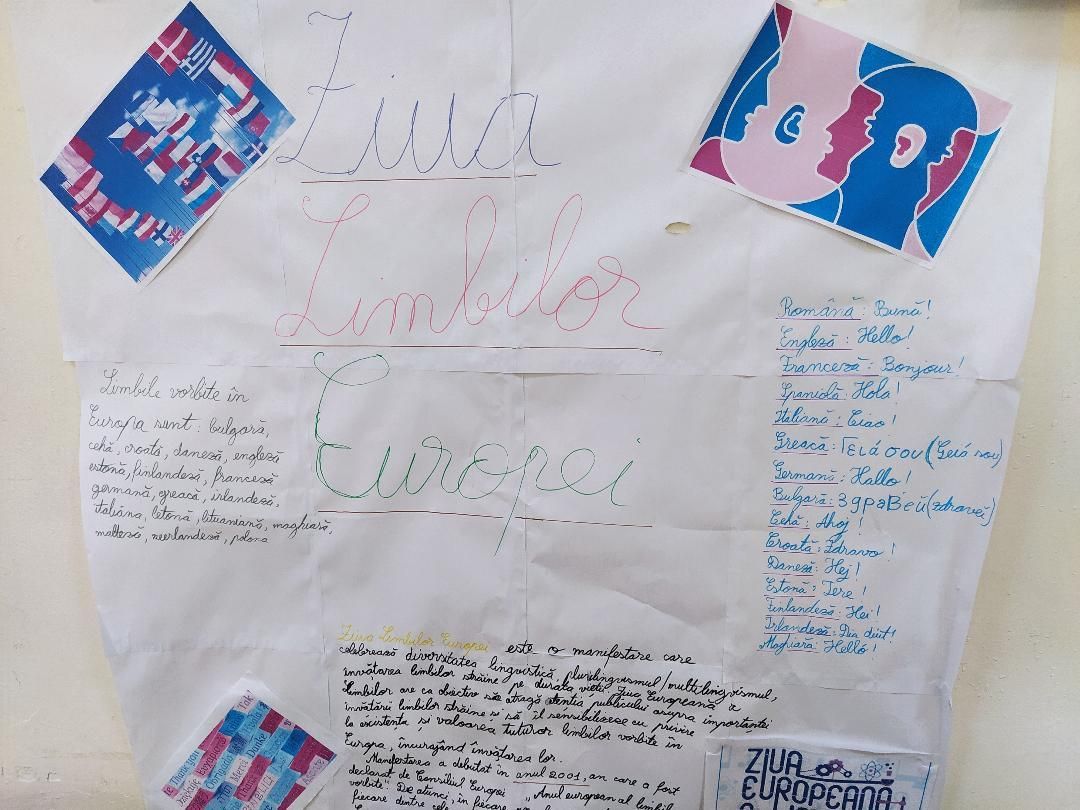 Ziua
Limbilor
Europei
Limbile vorbite în
Europa sunt: bulgară,
cehă, croată, daneză, engleză
estonă, finlandeză, franceză
germană, greacă, irlandeză,
italiana, letonă, lituaniană, maghiară,
malteză, neerlandeză, polona
Română: Bună!
Engleză: Hello!
Franceză: Bonjour!
Spaniolă: Hola!
Italiană: Ciao!
Greacă: Γειά σου (Geiá sou)
Germană: Hallo!
Bulgară: Здравей (zdraveĭ)
Cehă: Ahoj!
Croată: Zdravo!
Daneză: Hej!
Estonă: Tere!
Finlandeză: Hei!
Irlandeză: Dia duit!
Maghiară: Helló!
Ziua Limbilor Europei este o manifestare care
celebrează diversitatea lingvistică, plurilingvismul/multilingvismul,
învătarea limbilor străine pe durata vieții. Ziua Europeană a
limbilor are ca obiectiv să atragă atenția publicului asupra importanței
învătării limbilor străine și să îl sensibilizeze cu privire
la existența și valoarea tuturor limbilor vorbite în
Europa, încurajând învătarea lor.
Manifestarea a debutat în anul 2001, an care a fost
declarat de Consiliul Europei „Anul european al limbil
vorbite". De atunci, în fiecare
fiecare dintre cele
Thank you
Grazie
Obrigado
Merci
Danke
Tak!
ZIUA
EUROPEANĂ